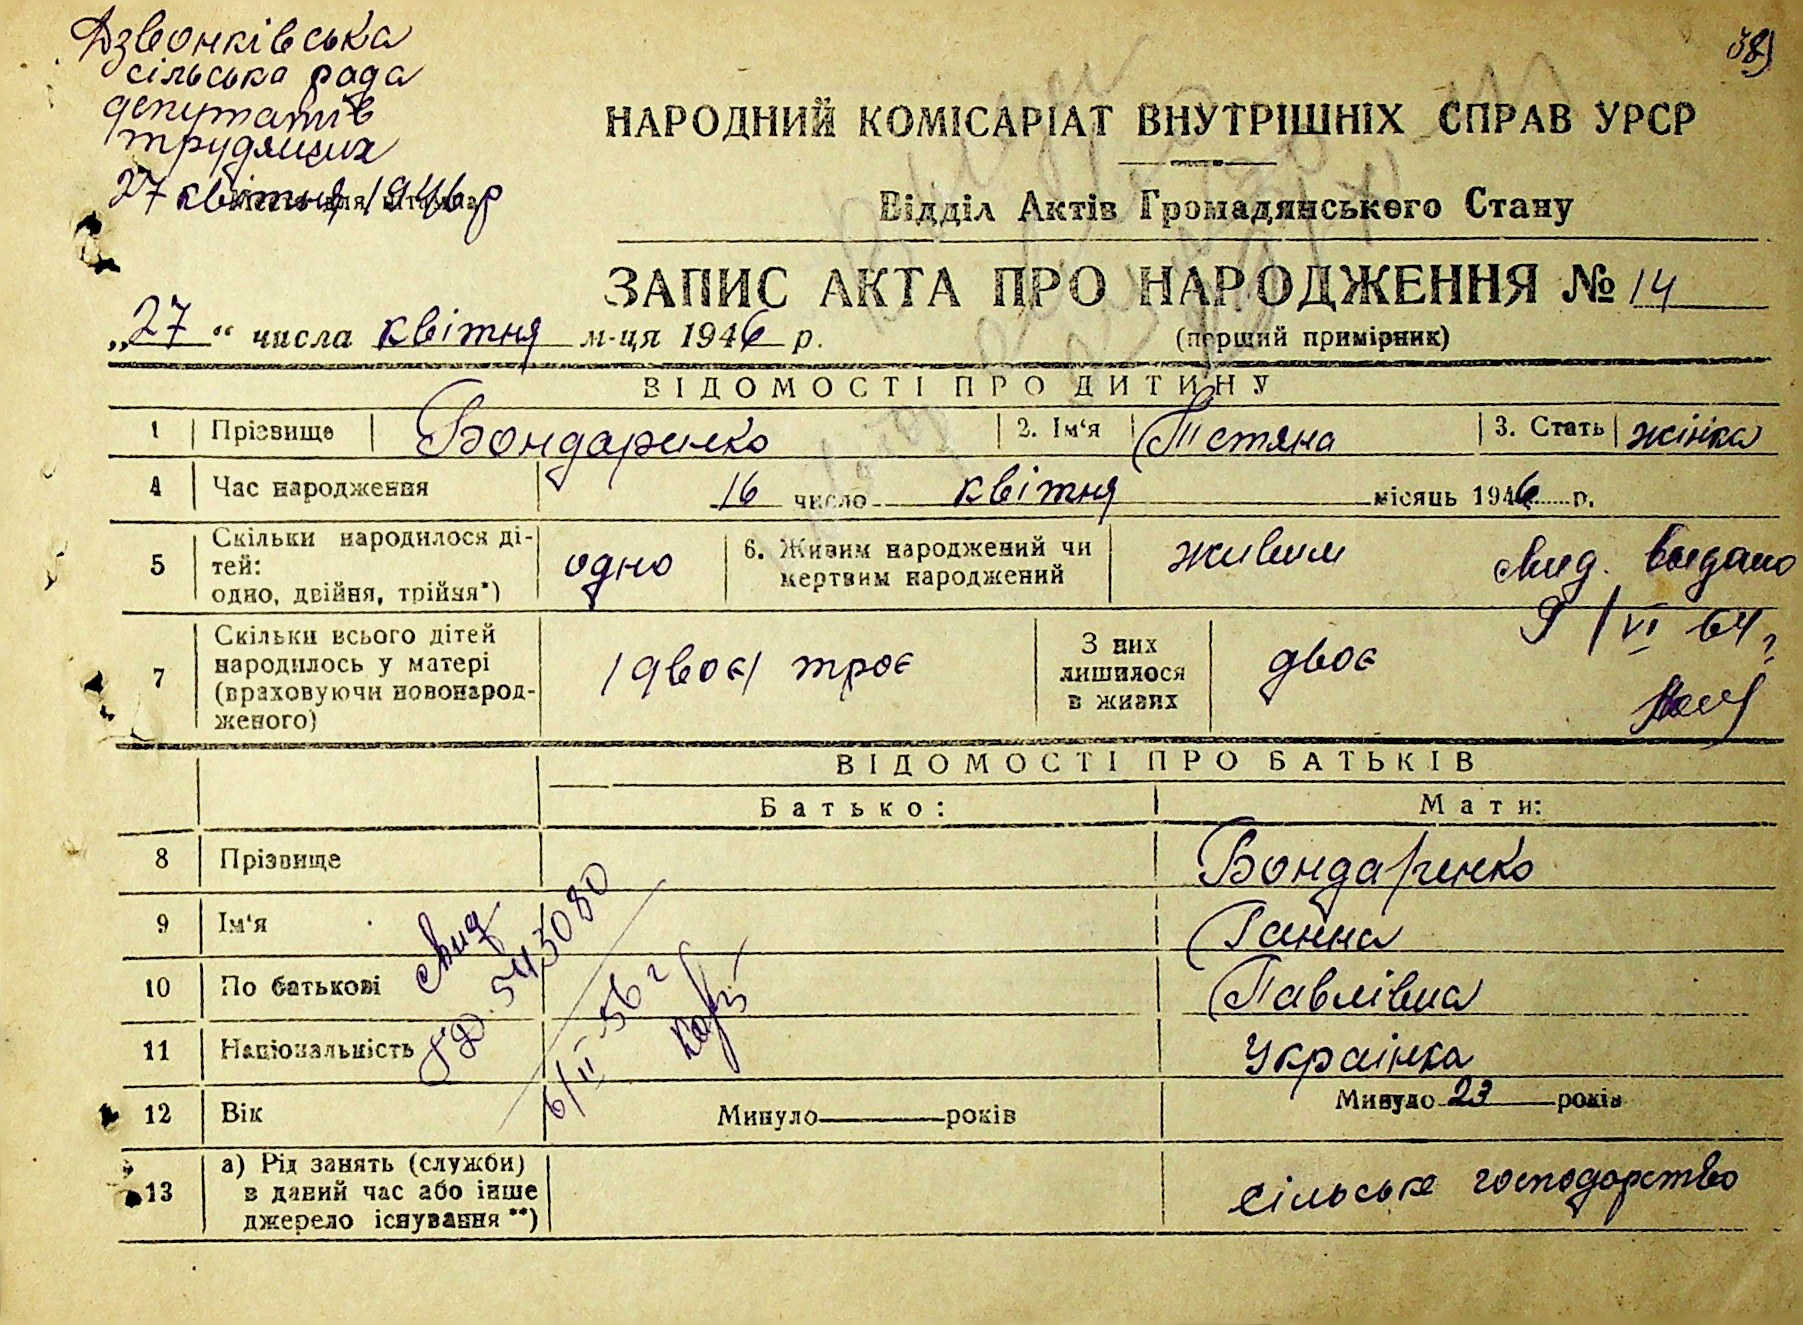 Дзвонківська
сільська рада
депутатів
трудящих
27 квітня 1946 р
38
НАРОДНИЙ КОМІСАРІАТ ВНУТРІШНІХ СПРАВ УРСР
Відділ Актів Громадянського Стану
ЗАПИС АКТА ПРО НАРОДЖЕННЯ № 14
„27“ числа квітня м-ця 1946 р.
(перший примірник)
ВІДОМОСТІ ПРО ДИТИНУ
1 Прізвище Бондаренко 2. Ім'я Тетяна 3. Стать жінка
4 Час народження 16 число квітня місяць 1946 р.
5 Скільки народилося ді-
тей:
одно, двійня, трійня*) одно 6. Живим народжений чи
мертвим народжений живим
Свид. выдано
9/VI 64 г.
7 Скільки всього дітей
народилось у матері
(враховуючи новонарод-
женого) /двоє/ троє З них
лишилося
в живих двоє
ВІДОМОСТІ ПРО БАТЬКІВ
Батько: Мати:
8 Прізвище Бондаренко
9 Ім'я Ганна
10 По батькові Павлівна
11 Національність Українка
12 Вік Минуло років Минуло 23 років
13 а) Рід занять (служби)
в даний час або інше
джерело існування **) сільське господарство
Свид
543080
6/II-56 г